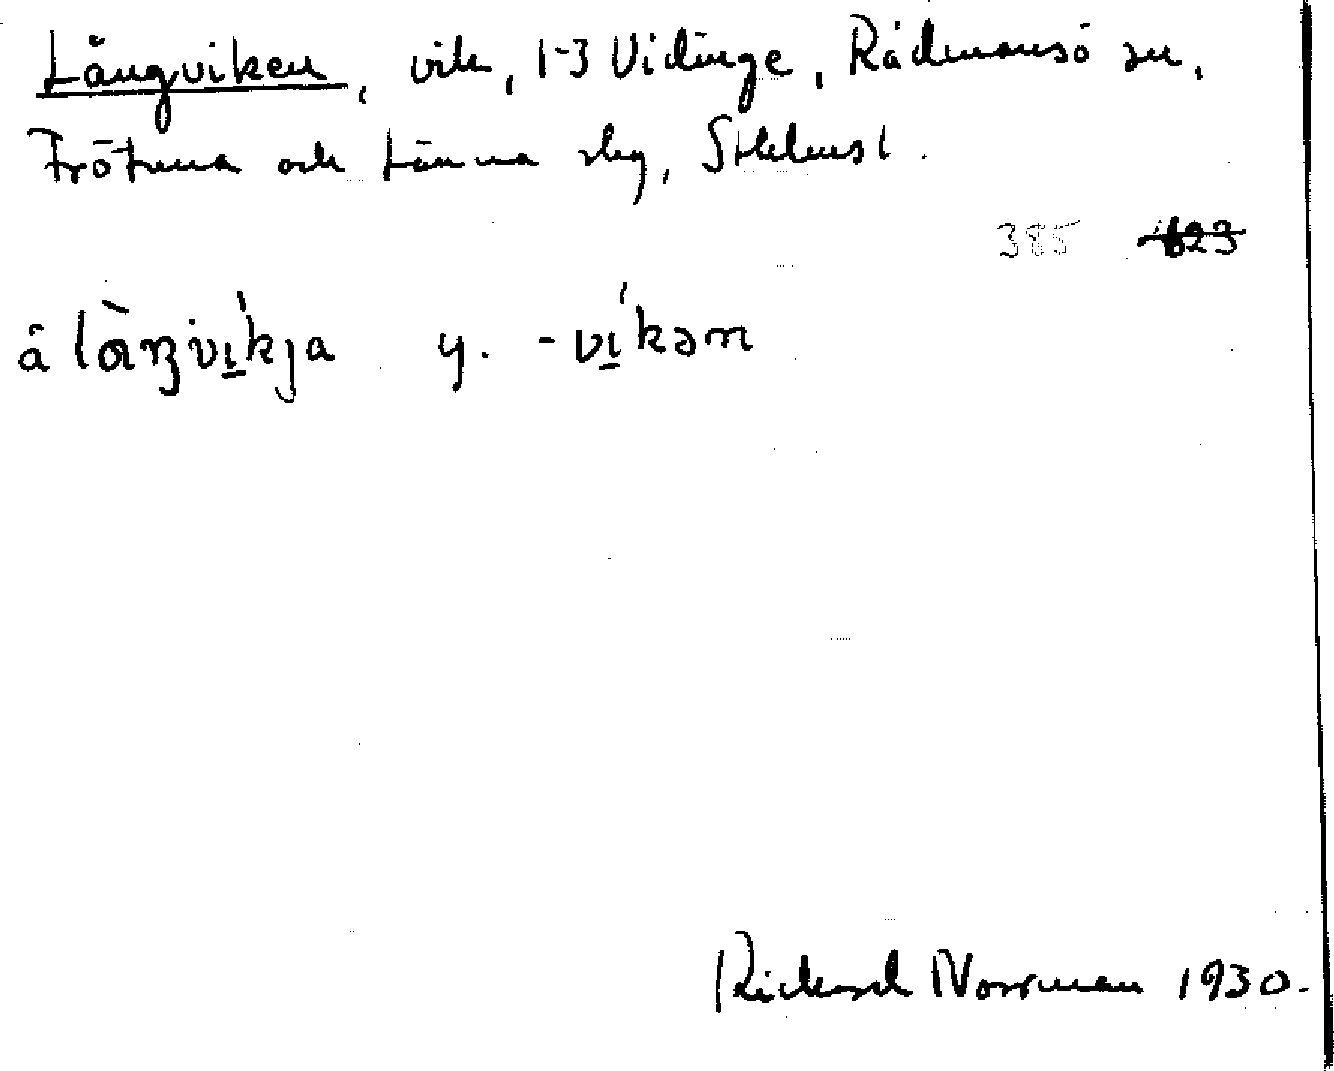 Långviken, vik, 1-3 Vidinge, Rådmansö sn,
Frötuna och Länna slg, Sthlms l.
385 623
å làŋvi̲'kja y. -vi̲'kən
Rickard Norrman 1930.